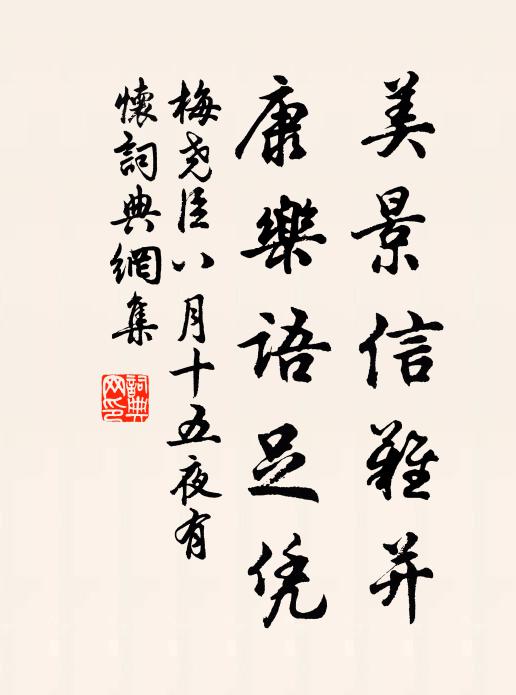 美景信難并
康樂語足凭
梅堯臣八月十五夜有
懷詞典網集
詞典
网印